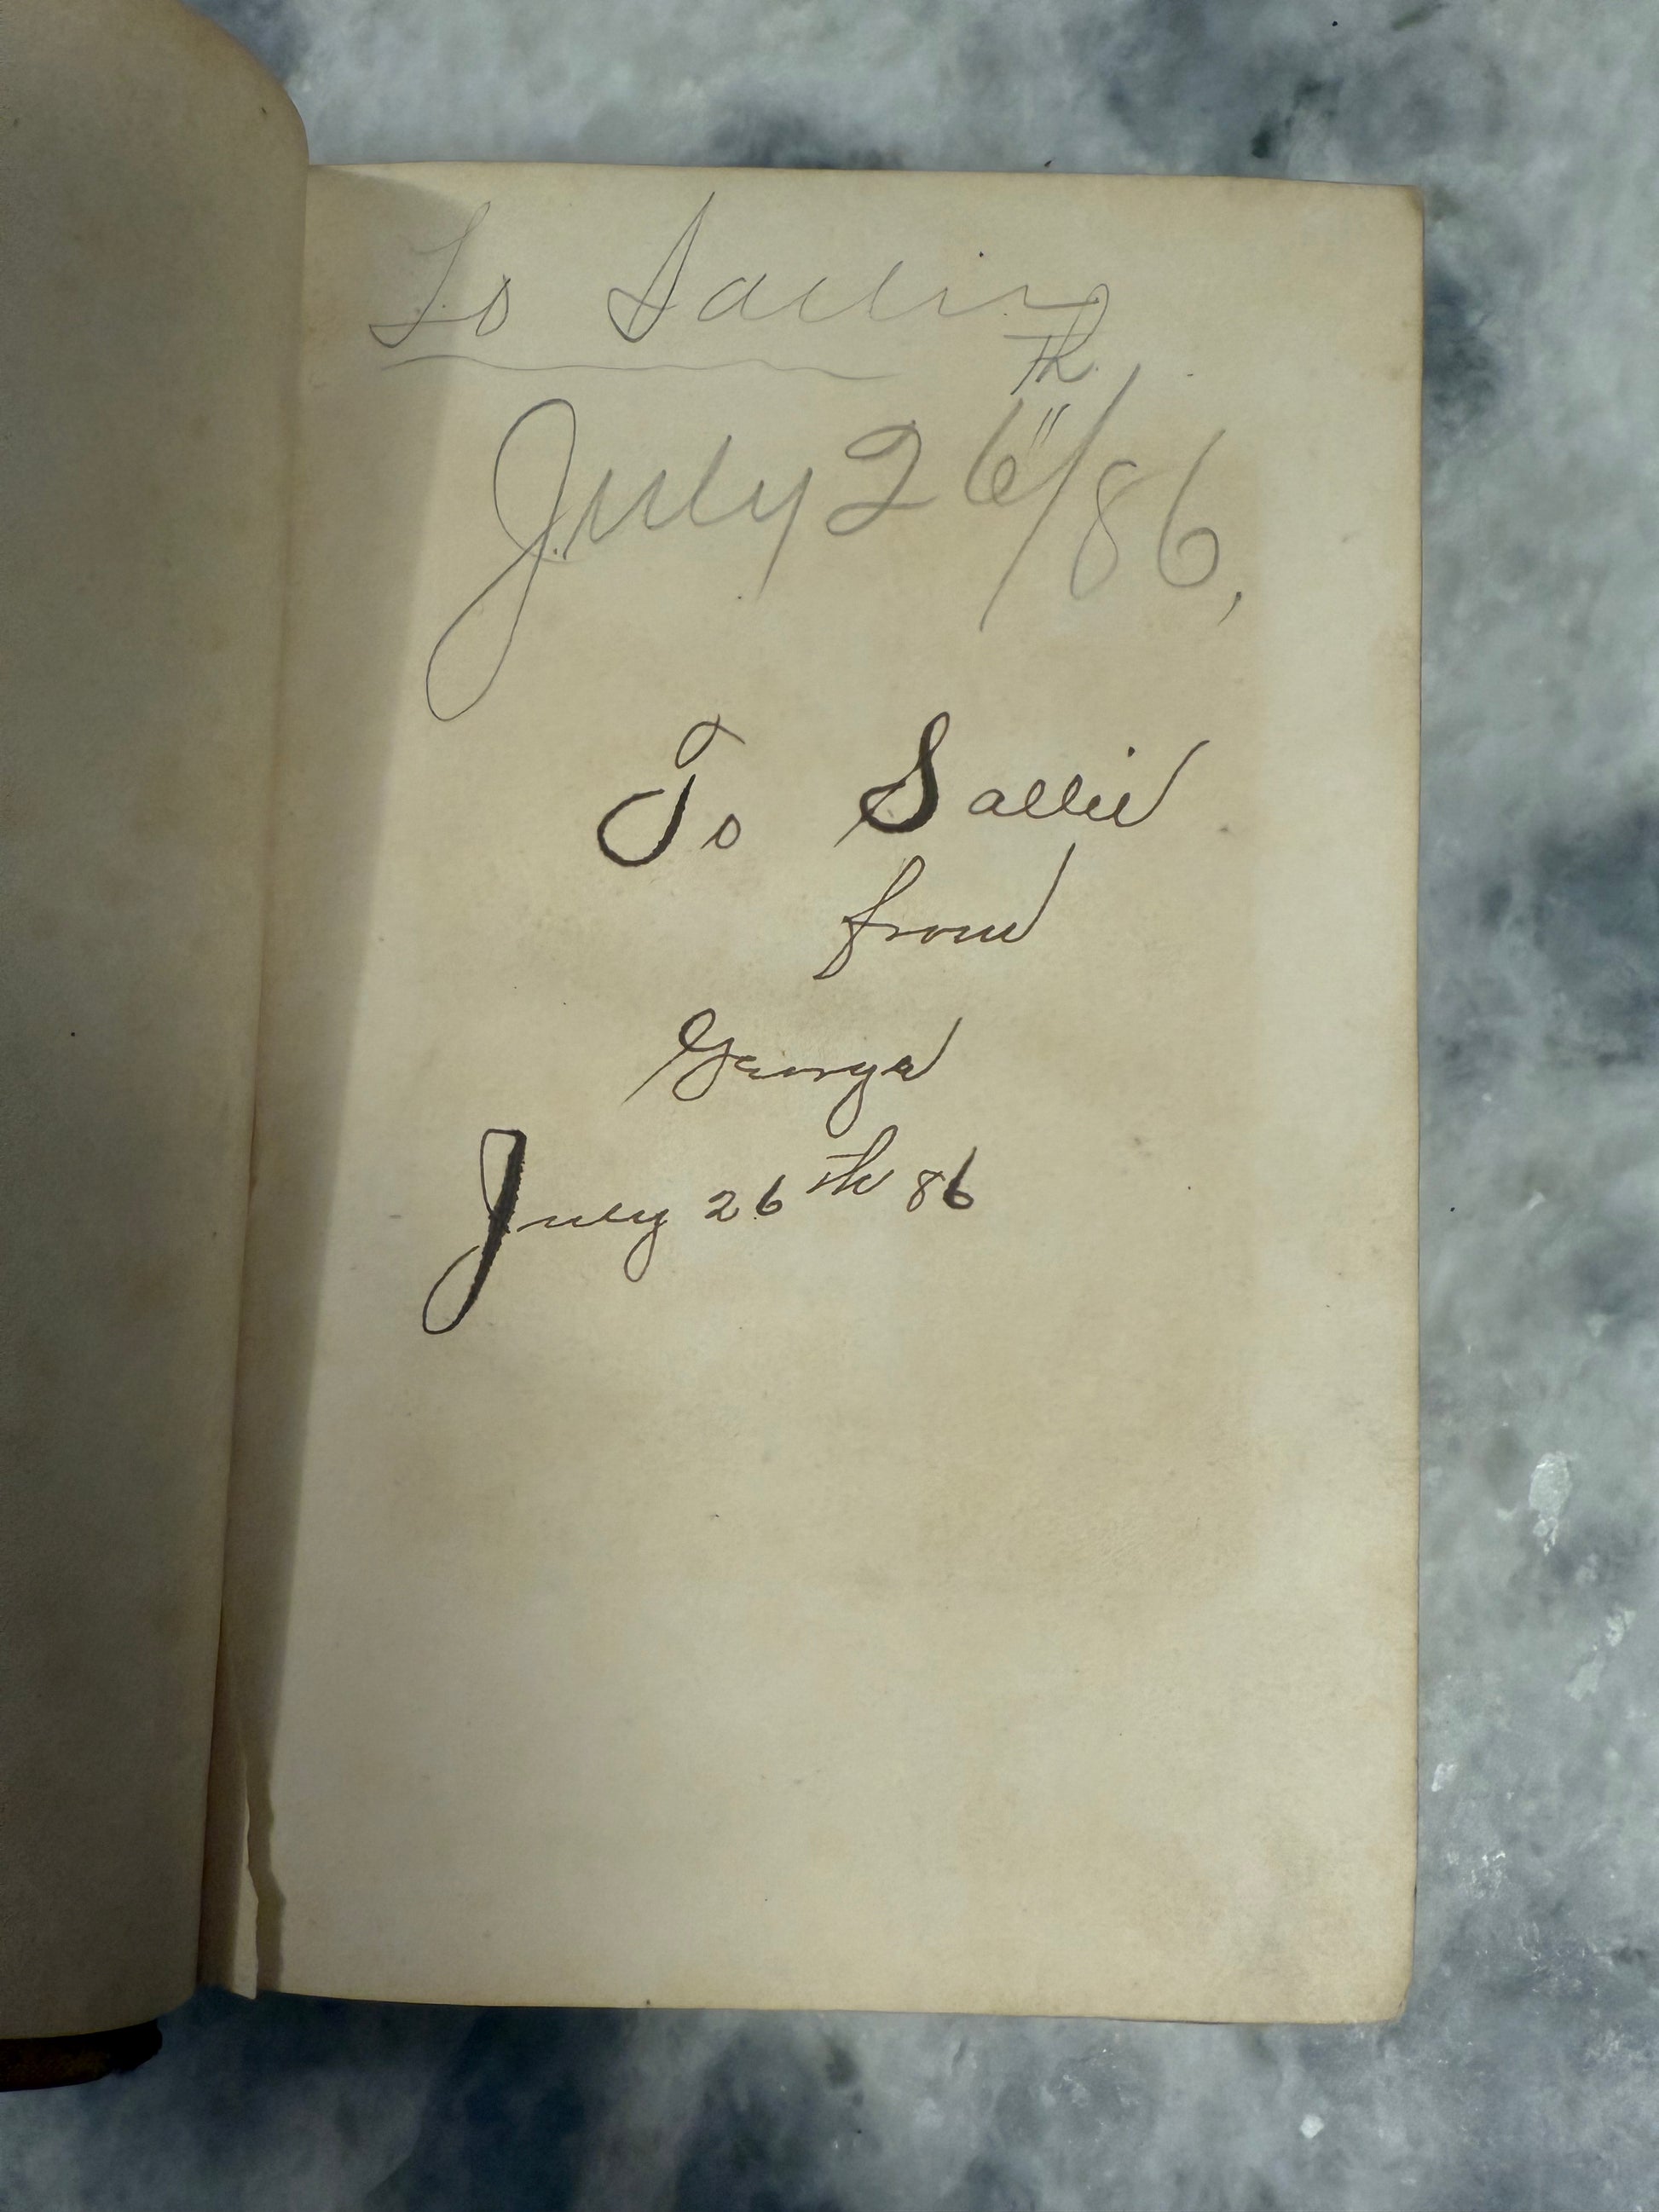 To Sallie
July 26th/86,
To Sallie
from
George
July 26th 86